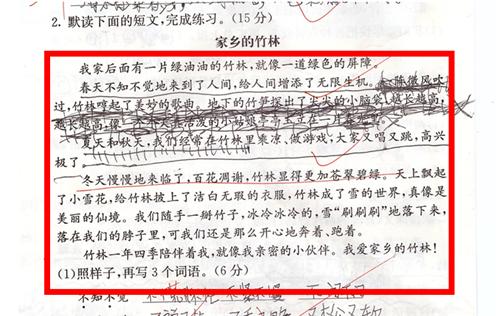 2. 默读下面的短文,完成练习。(15 分)
家乡的竹林
我家后面有一片绿油油的竹林,就像一道绿色的屏障。
春天不知不觉地来到了人间,给人间增添了无限生机。微风吹
过,竹林哼起了美妙的歌曲。地下的竹笋探出了尖尖的小脑袋,越长越高,
越长越高,像一个个天真活泼的小姑娘亭亭玉立在一片
夏天和秋天,我们经常在竹林里乘凉、做游戏;大家又唱又跳,高兴
极了。
冬天慢慢地来临了,百花凋谢,竹林显得更加苍翠碧绿。天上飘起
了小雪花,给竹林披上了洁白无瑕的衣服,竹林成了雪的世界,真像是
美丽的仙境。我们随手一掰竹子,冰冷冰冷的,雪“刷刷刷”地落下来,
落在我们的脖子里,可我们还是那么开心地奔着、跑着。
竹林一年四季陪伴着我,就像我亲密的小伙伴。我爱家乡的竹林!
(1)照样子,再写 3 个词语。(6 分)
不知不觉 不慌不忙 不紧不慢 不闻不问